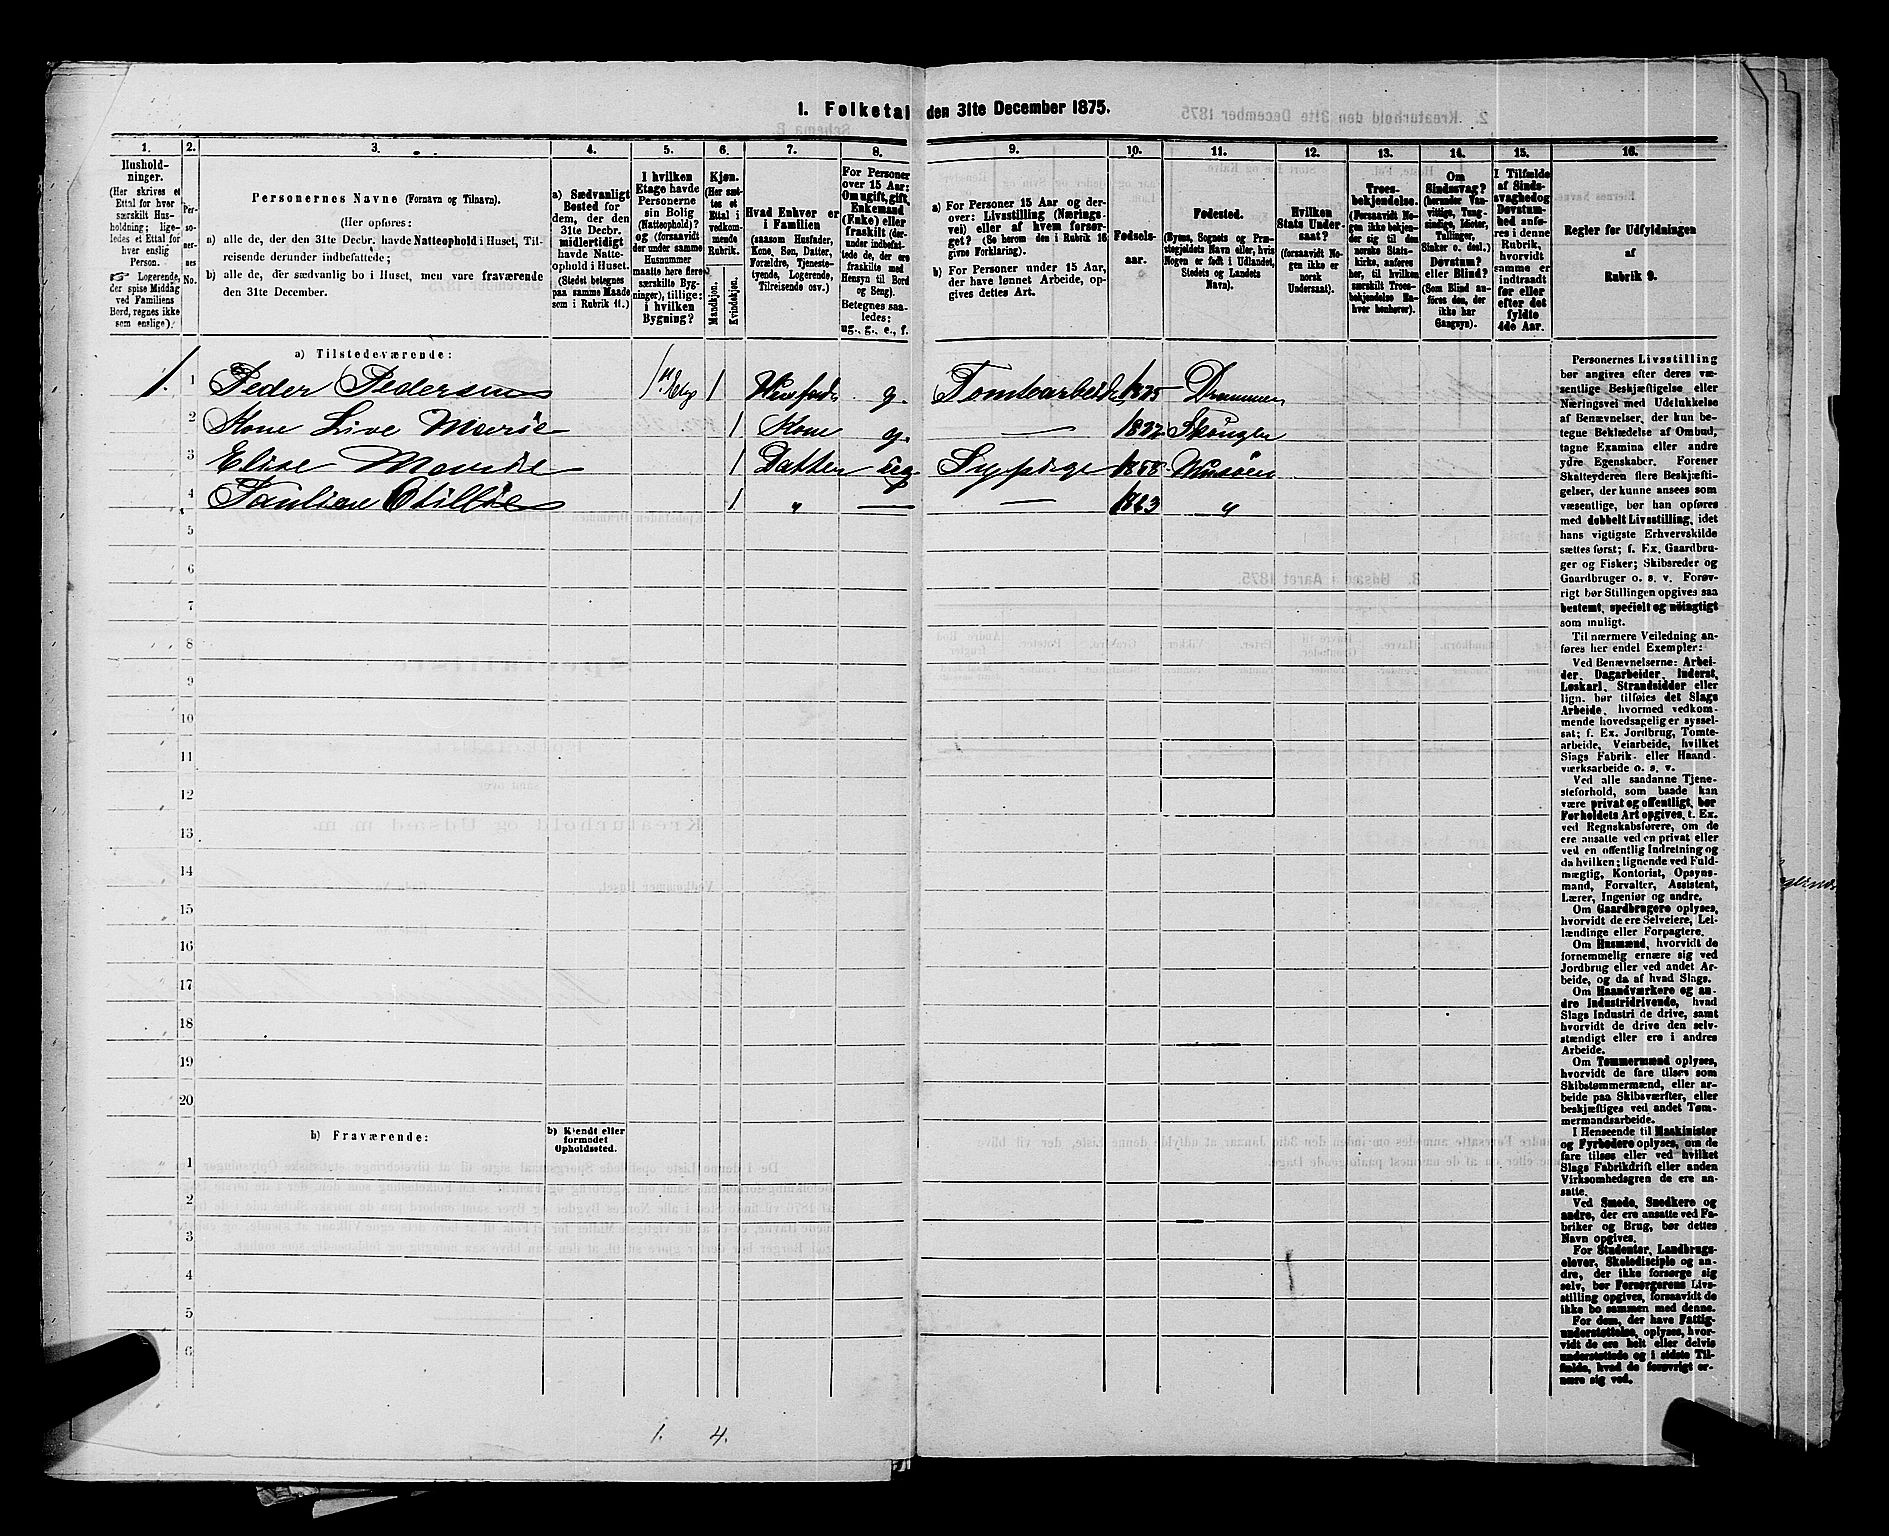 1. Folketal den 31te December 1875.
1. 2. 3. 4. 5. 6. 7. 8. 9. 10. 11. 12. 13. 14. 15. 16.
Hushold-
ninger.
(Her skrives et
Ettal for hver
særskilt Hus-
holdning; lige-
ledes et Ettal for
hver enslig
Person.
☞ Logerende,
der spise Middag
ved Familiens
Bord, regnes ikke
som enslige).
Per-
so-
ner-
nes
No.
Personernes Navne (Fornavn og Tilnavn).
(Her opføres:
a) alle de, der den 31te Decbr. havde Natteophold i Huset, Til-
reisende derunder indbefattede;
b) alle de, der sædvanlig bo i Huset, men vare fraværende
den 31te December.
a) Sædvanligt
Bosted for
dem, der den
31te Decbr.
midlertidigt
havde Natte-
ophold i Huset.
(Stedet betegnes
paa samme Maade
som i Rubrik 11.)
I hvilken
Etage havde
Personerne
sin Bolig
(Natteophold)?
og (forsaavidt
der under samme
Husnummer
maatte here flere
særskilte Byg-
ninger), tillige:
i hvilken
Bygning?
Kjøn.
(Her sæt-
tes et
Ettal i
vedkom-
mende
Rubrik.
Mandkjøn.
Kvindekjøn.
Hvad Enhver er
i Familien
(saasom Husfader,
Kone, Søn, Datter,
Forældre, Tjeneste-
tyende, Logerende,
Tilreisende osv.)
For Personer
over 15 Aar:
Om ugift, gift,
Enkemand
(Enke) eller
fraskilt (der-
under indbefat-
tede de, der ere
fraskilte med
Hensyn til Bord
og Seng).
Betegnes saa-
ledes:
ug., g., e., f.
a) For Personer 15 Aar og der-
over: Livsstilling (Nærings-
vei) eller af hvem forsør-
get? (Se herom den i Rubrik 16
givne Forklaring).
b) For Personer under 15 Aar,
der have lønnet Arbeide, op-
gives dettes Art.
Fødsels-
aar.
Fødested.
(Byens, Sognets og Præ-
stegjeldets Navn eller, hvis
Nogen er født i Udlandet,
Stedets og Landets
Navn).
Hvilken
Stats Under-
saat?
(forsaavidt No-
gen ikke er
norsk
Undersaat).
Troes-
bekjendelse.
(Forsaavidt No-
gen ikke bekjen-
der sig til den
norske Stats-
kirke, anføres
her, til hvilken
særskilt Troes-
bekjendelse En-
hver henhører).
Om
Sindssvag?
(herunder Van-
vittige, Tung-
sindige, Idioter,
Tullinger,
Sinker o. desl.)
Døvstum?
eller Blind?
(Som Blind an-
føres den, der
ikke har
Gangsyn).
I Tilfælde
af Sinds-
svaghed og
Døvstum-
hed anfø-
res i denne
Rubrik,
hvorvidt
samme er
indtraadt
før eller
efter det
fyldte
4de Aar.
Regler for Udfyldningen
af
Rubrik 9.
a) Tilstedeværende:
1. 1 Peder Pedersen 1ste Etage 1 Husfader g. Tomtearbeider 1835 Drammen
2 Kone Live Marie 1 Kone g. — 1832 Skouger
3 Elise Marie 1 Datter ug Sypige 1858
4 Pauline Otillie 1 „ — — 1863 „
5
6
7
8
9
10
11
12
13
14
15
16
17
18
19
20
b) Fraværende:
b) Kjendt eller
formodet
Opholdssted.
1
2
3
4
5
6
1. 4.
Personernes Livsstilling
bør angives efter deres væ-
sentlige Beskjæftigelse eller
Næringsvei med Udelukkelse
af Benævnelser, der kun be-
tegne Beklædelse af Ombud,
tagne Examina eller andre
ydre Egenskaber. Forener
Skatteyderen flere Beskjæfti-
gelser, der kunne ansees som
væsentlige, bør han opføres
med dobbelt Livsstilling, idet
hans vigtigste Erhvervskilde
sættes først; f. Ex. Gaardbru-
ger og Fisker; Skibsreder og
Gaardbruger o. s. v. Forøv-
rigt bør Stillingen opgives saa
bestemt, specielt og nøiagtigt
som muligt.
Til nærmere Veiledning an-
føres her endel Exempler:
Ved Benævnelserne: Arbei-
der, Dagarbeider, Inderst,
Løskarl, Strandsidder eller
lign. bør tilføies det Slags
Arbeide, hvormed vedkom-
mende hovedsagelig er syssel-
sat; f. Ex. Jordbrug, Tomte-
arbeide, Veiarbeide, hvilket
Slags Fabrik- eller Haand-
værksarbeide o. s. v.
Ved alle saadanne Tjene-
steforhold, som baade kan
være privat og offentligt, bør
Forholdets Art opgives, t. Ex.
ved Regnskabsførere, om de
ere ansatte ved en privat eller
ved en offentlig Indretning og
da hvilken; lignende ved Fuld-
mægtig, Kontorist, Opsyns-
mand, Forvalter, Assistent,
Lærer, Ingeniør og andre.
Om Gaardbrugere oplyses,
hvorvidt de ere Selveiere, Lei-
lændinge eller Forpagtere.
Om Husmænd, hvorvidt de
fornemmelig ernære sig ved
Jordbrug eller ved andet Ar-
beide, og da af hvad Slags.
Om Haandværkere og an-
dre Industridrivende, hvad
Slags Industri de drive, samt
hvorvidt de drive den selv-
stændigt eller ere i andres
Arbeide.
Om Tømmermænd oplyses,
hvorvidt de fare tilsøs som
Skibstømmermænd, eller ar-
beide paa Skibsværfter, eller
beskjæftiges ved andet Tøm-
mermandsarbeide.
I Henseende til Maskinister
og Fyrbødere oplyses, om de
fare tilsøs eller ved hvilket
Slags Fabrikdrift eller anden
Virksomhedsgren de ere an-
satte.
Ved Smede, Snedkere og
andre, der ere ansatte ved Fa-
briker og Brug, bør dettes
Navn opgives.
For Studenter, Landbrugs-
elever, Skoledisciple og an-
dre, der ikke forsørge sig
selv, bør Forsørgerens Livs-
stilling opgives, forsaavidt de
ikke bo sammen med denne.
For dem, der have Fattig-
understøttelse, oplyses, hvor-
vidt de ere helt eller delvis
understøttede og i sidste Til-
fælde, hvad de forøvrigt er-
nære sig ved.